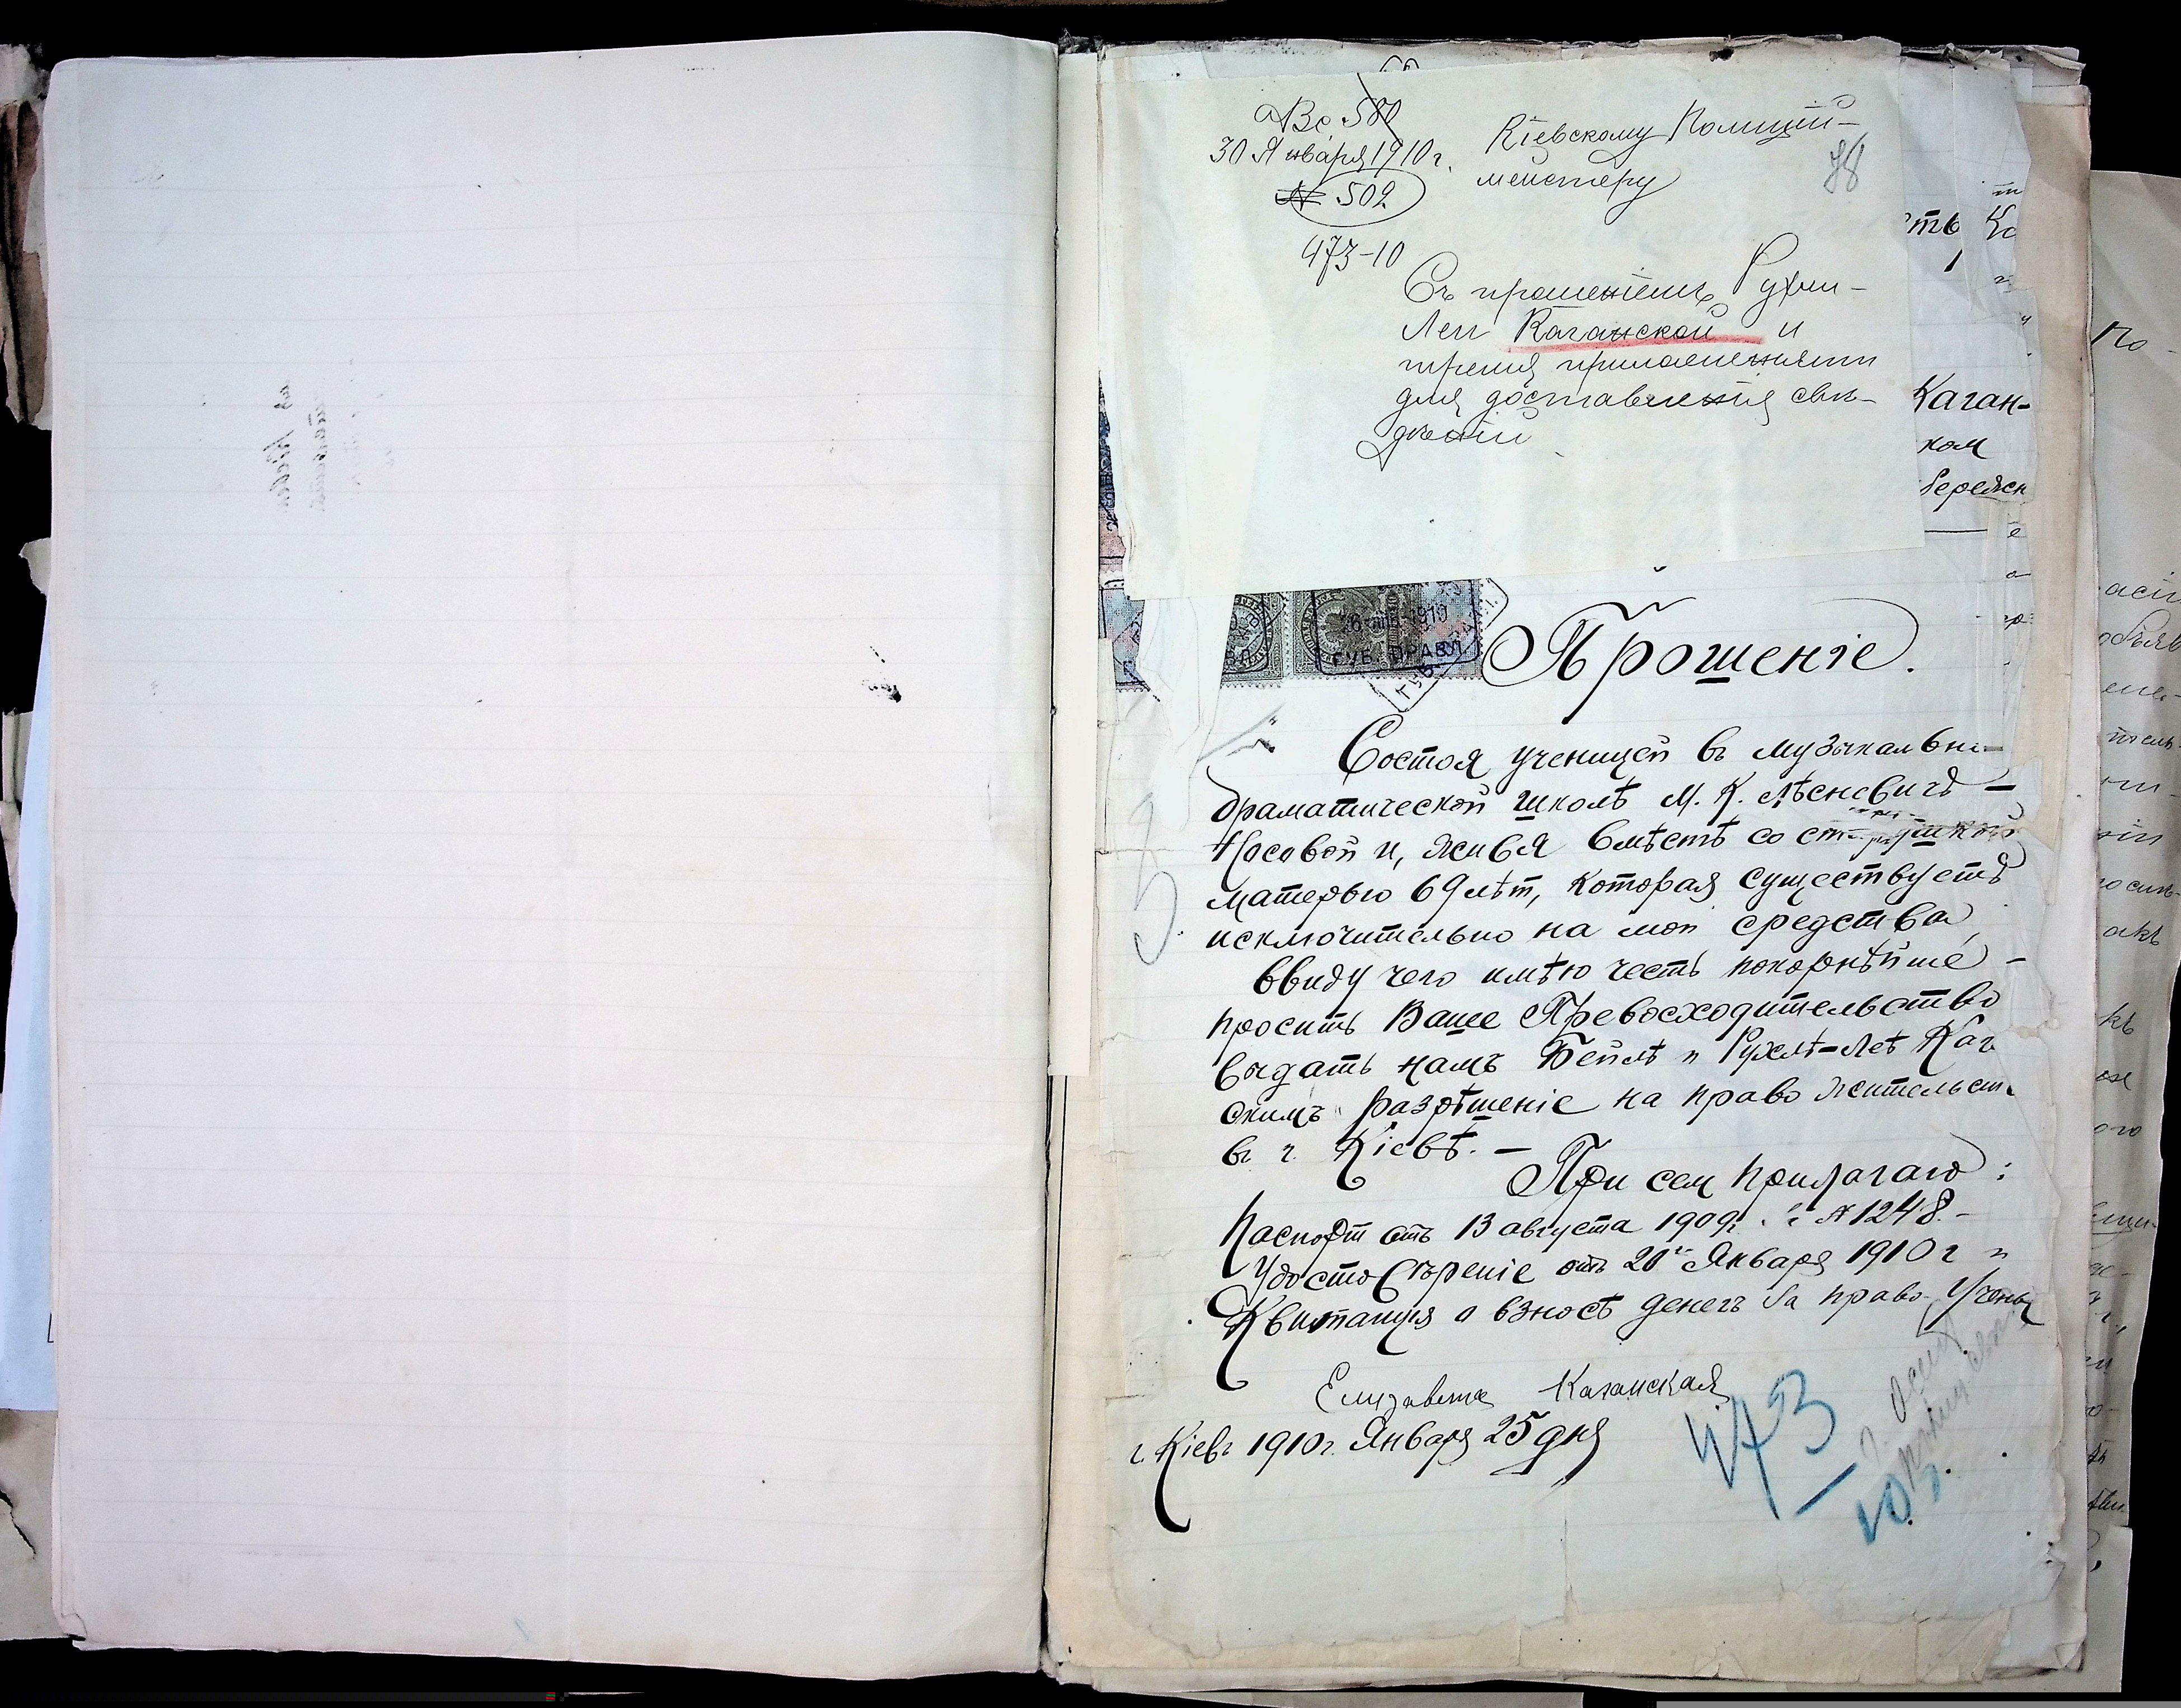 30 Января 1910 г.
№ 502
473-10
Кіевскому Полицій-
мейстеру
78
Съ прошеніемъ Рухли-
Леи Каганской и
тремя приложеніями
для доставленія свѣ-
дѣній
ть Ка
Каган-
ком
26 ЯНВ 1910
ГУБ. ПРАВЛ
Прошеніе.
Состоя ученицей въ музыкально-
драматической школѣ М. К. Лѣсневичъ-
Носовой и, живя вмѣстѣ со старушкой
матерью 69 лѣт, которая существуетъ
исключительно на мои средства,
ввиду чего имѣю честь покорнѣйше
просить Ваше Превосходительство
выдать намъ Бейлѣ и Рухлѣ-Леѣ Каг
скимъ разрѣшеніе на право жительст
въ г. Кіевѣ. —
При сем прилагаю:
Паспорт отъ 13 августа 1909г. № 1248. —
Удостовѣреніе отъ 20 Января 1910 г и
Квитанція о взносѣ денегъ за право Учень
Елизавета Каганская
г. Кіевъ 1910 г. Января 25 дня
473
10 г.